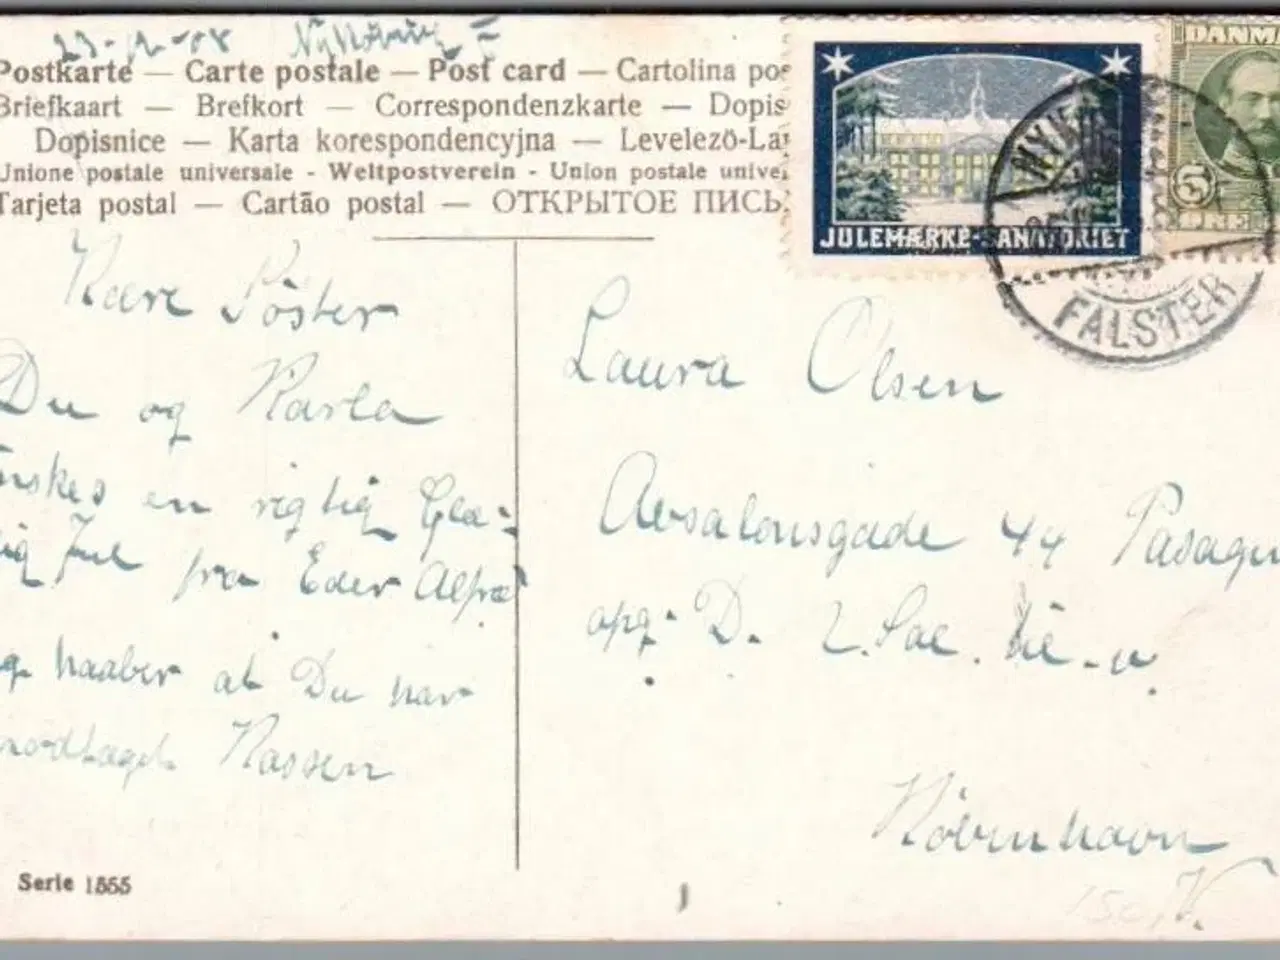 23-12-08 Nykøbing F
Postkarte — Carte postale — Post card — Cartolina pos
Briefkaart — Brefkort — Correspondenzkarte — Dopis
Dopisnice — Karta korespondencyjna — Levelező-La
Unione postale universale - Weltpostverein - Union postale unive
Tarjeta postal — Cartão postal — ОТКРЫТОЕ ПИСЬ
JULEMÆRKE-SANATORIET
DANMA
5
ØRE
NYK
FALSTER
Kære Söster
Du og Karla
önskes en rigtig Glæ-
lig Jul fra Eder Alfred
og haaber at Du har
modtaget Kassen
Serie 1555
Laura Olsen
Absalonsgade 44
opg. D. 2. Sal
Köbenhavn
V.